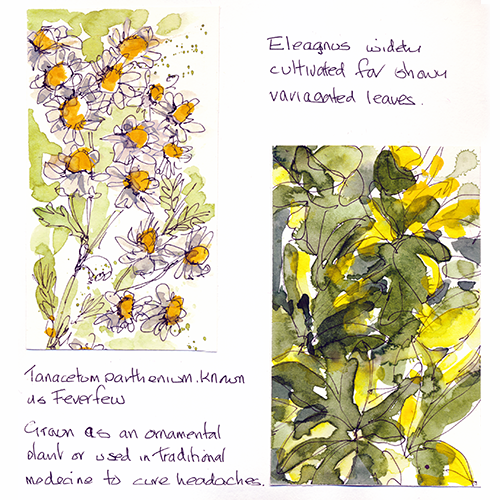 Eleagnus widely
cultivated for showy
variagated leaves.
Tanacetum parthenium. Known
as Feverfew
Grown as an ornamental
plant or used in traditional
medecine to cure headaches.